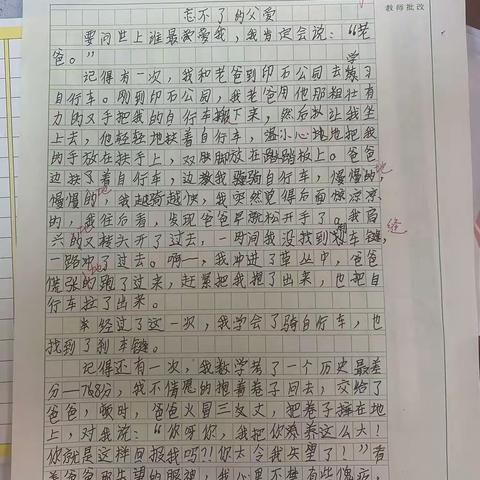 教师批改
忘不了的父爱
要问世上谁最爱我,我肯定会说:“老
爸。”
记得有一次,我和老爸到印石公园去学习
自行车。刚到印石公园,我老爸用他那粗壮有
力的双手把我的自行车搬下来,然后让我坐
上去,他轻轻地扶着自行车,小心地把我
的手放在扶手上,双脚放在踏板上。爸爸
边扶着自行车,边教我骑自行车,慢慢的,地
慢慢的,我越骑越快,我突然觉得后面凉凉
的,我往后看,发现爸爸早就松开手了。我高
兴的又转头开了过去,一时间我没找到刹车键,
一路冲了过去。啊一,我冲进了草丛中,爸爸
慌张的跑了过来,赶紧把我抱了出来,也把自
行车拉了出来。
经过了这一次,我学会了骑自行车,也
找到了刹车键。
记得还有一次,我数学考了一个历史最差
分—76.8分,我不情愿的抱着卷子回去,交给了
爸爸,顿时,爸爸火冒三丈,把卷子摔在地
上,对我说:“你呀你,我把你养这么大!
你就是这样回报我吗?!你太令我失望了!”看
着爸爸那失望的眼神,我心里不禁有些愧疚,